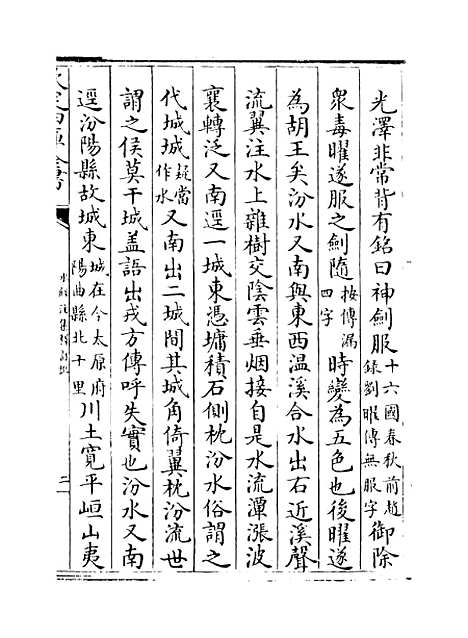 光澤非常背有銘曰神劍服十六國春秋前趙錄劉曜傳無服字御除
衆毒曜遂服之劍隨按傳漏四字時變為五色也後曜遂
為胡王矣汾水又南與東西温溪合水出右近溪聲
流翼注水上雜樹交陰雲垂烟接自是水流潭漲波
襄轉泛又南逕一城東憑墉積石側枕汾水俗謂之
代城城疑當作水又南出二城間其城角倚翼枕汾流世
謂之侯莫干城蓋語出戎方傳呼失實也汾水又南
逕汾陽縣故城東城在今太原府陽曲縣北十里川土寛平峘山夷
水經注集釋訂訛
二